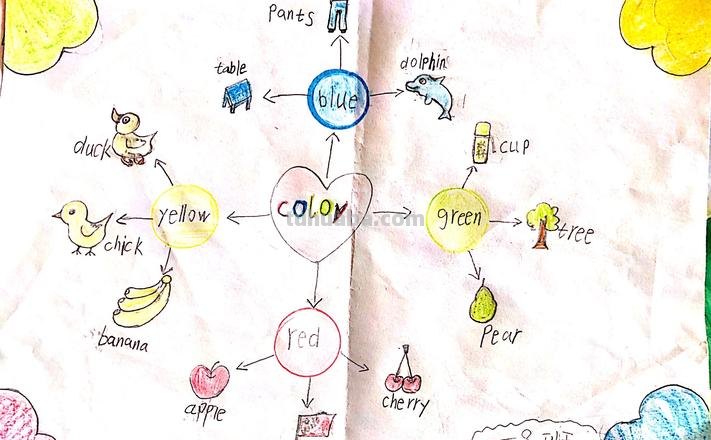 pants
table
dolphin
blue
duck
cup
yellow
color
green
tuhuaba.com
chick
tree
banana
pear
red
apple
cherry